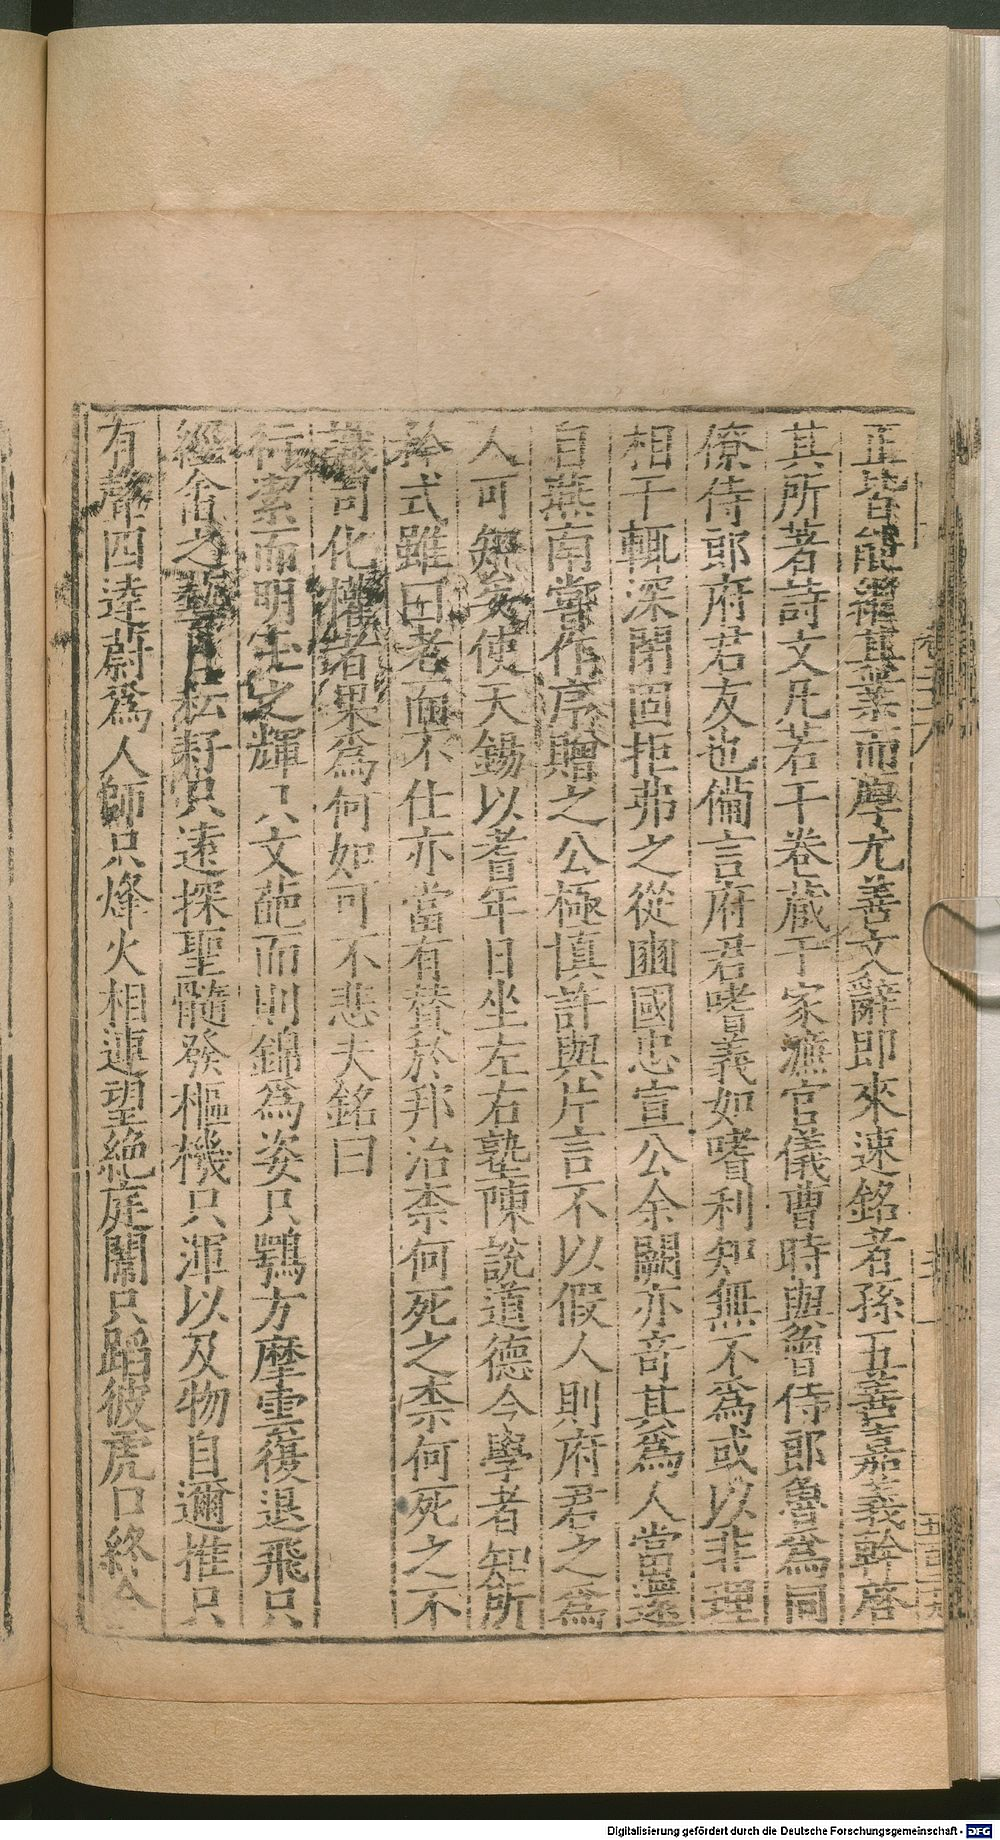 正皆能紹其業而學尤善文辭即來速銘者孫五善嘉義幹啓
其所著詩文凡若干卷藏于家濂官儀曹時與曾侍郎魯為同
僚侍郎府君友也備言府君嗜義如嗜利知無不為或以非理
相干輒深閉固拒弗之從豳國忠宣公余闕亦奇其為人當還
自燕南嘗作序贈之公極慎許與片言不以假人則府君之為
人可知矣使天錫以耆年日坐左右塾陳說道德今學者知所
矜式雖曰老而不仕亦當有替於邦治柰何死之柰何死之不
識司化權者果為何如可不悲夫銘曰
行潔而明玉之輝只文葩而則錦為姿只鶚方摩雲復退飛只
經畬之藝日耘耔只遠探聖髓發樞機只渾以及物自邇推只
有聲四達蔚為人師只烽火相連望絕庭闈只蹈彼虎口終
Digitalisierung gefördert durch die Deutsche Forschungsgemeinschaft - DFG